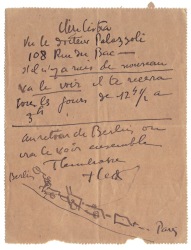 vu le docteur Palazzoli
108 Rue du Bac —
s'il n'y a rien de nouveau
va le voir il te recevra
tous les jours de 12h1/2 à
3h
au retour de Berlin on
ira le voir ensemble
T'embrasse
Berlin
Paris